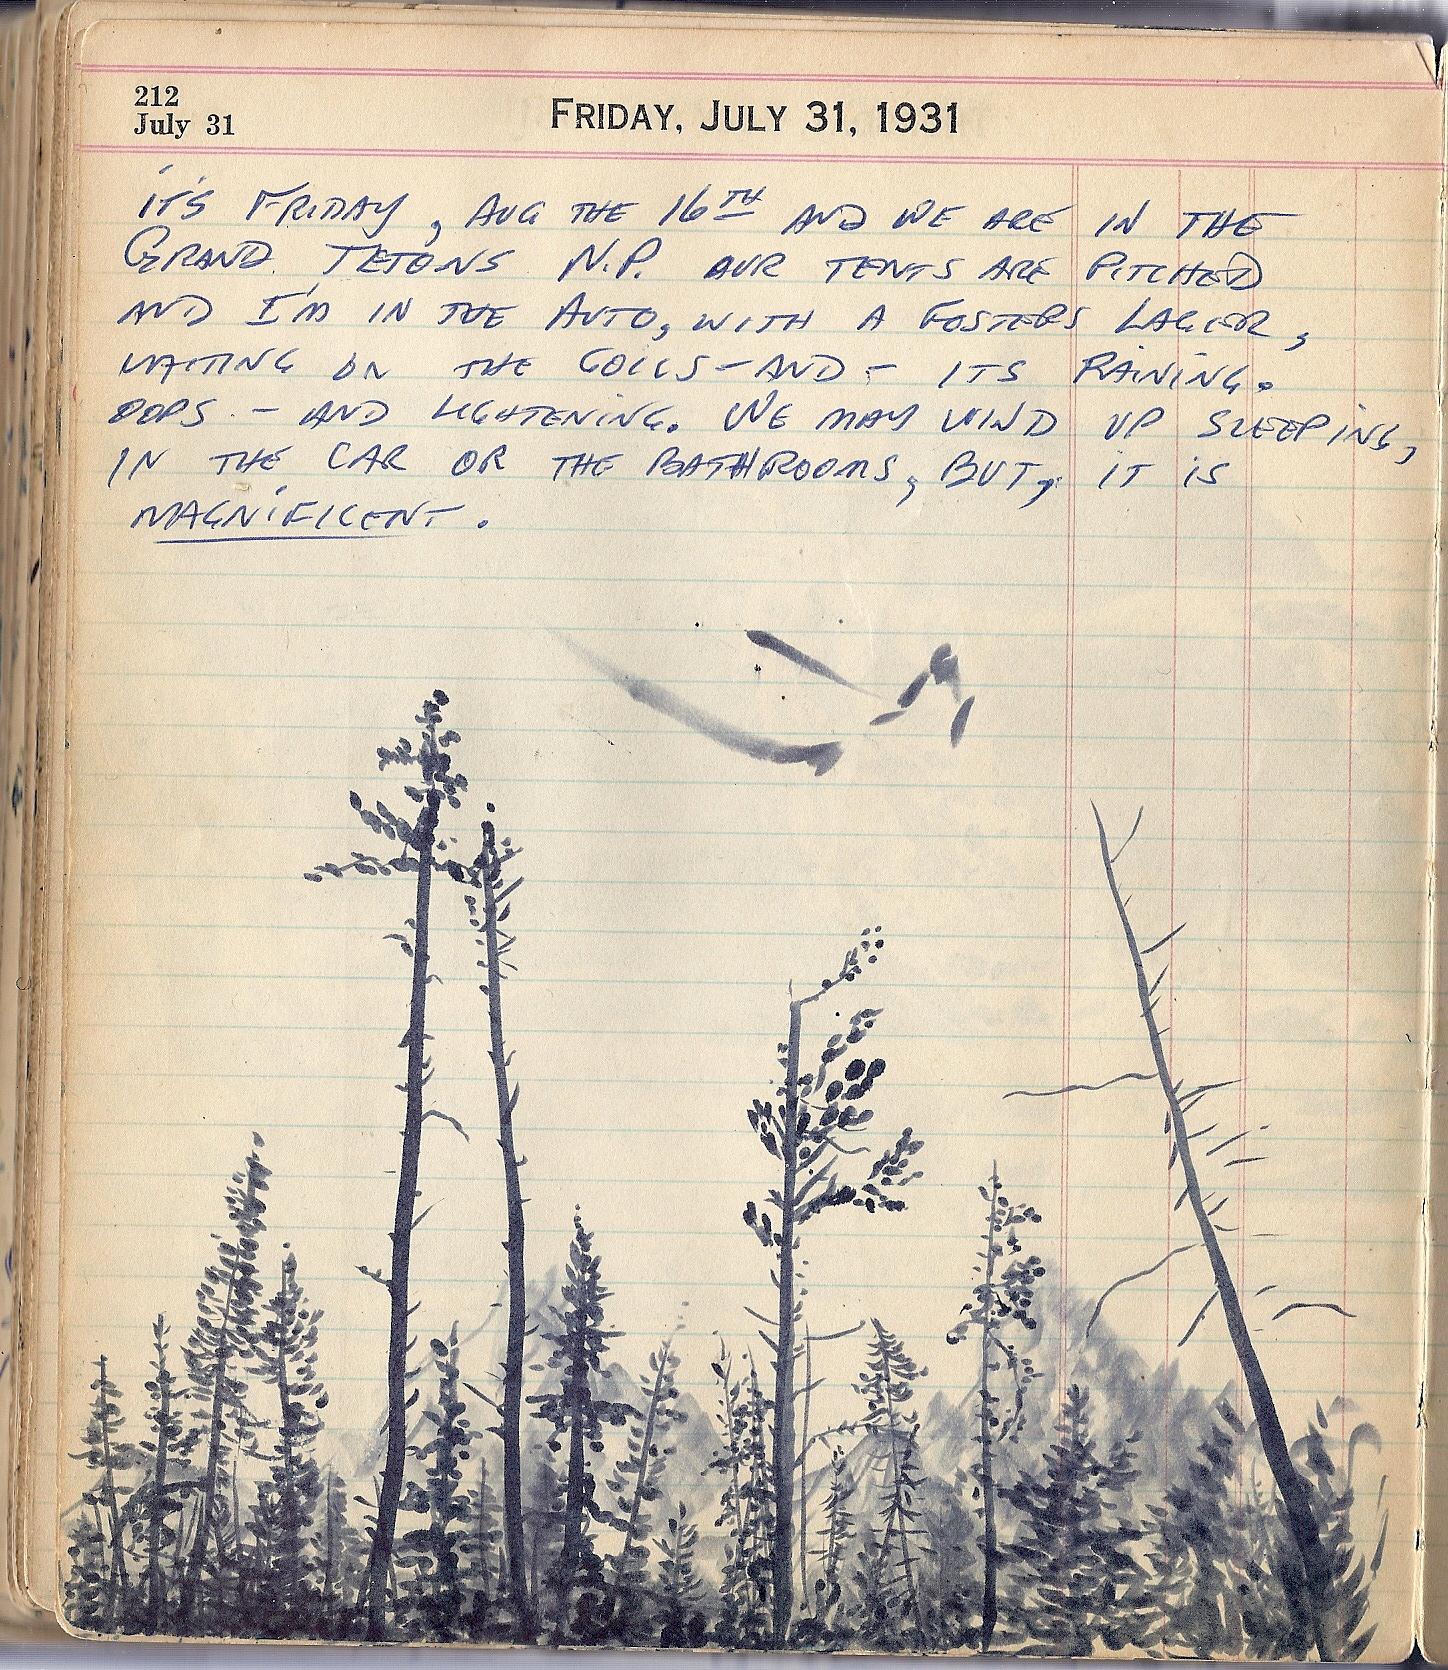 212
July 31
FRIDAY, JULY 31, 1931
IT'S FRIDAY, AUG THE 16TH AND WE ARE IN THE
GRAND TETONS N.P. OUR TENTS ARE PITCHED
AND I'M IN THE AUTO, WITH A FOSTERS LAGER,
WAITING ON THE COLLS - AND - ITS RAINING.
OOPS - AND LIGHTENING. WE MAY WIND UP SLEEPING,
IN THE CAR OR THE BATHROOMS, BUT, IT IS
MAGNIFICENT.